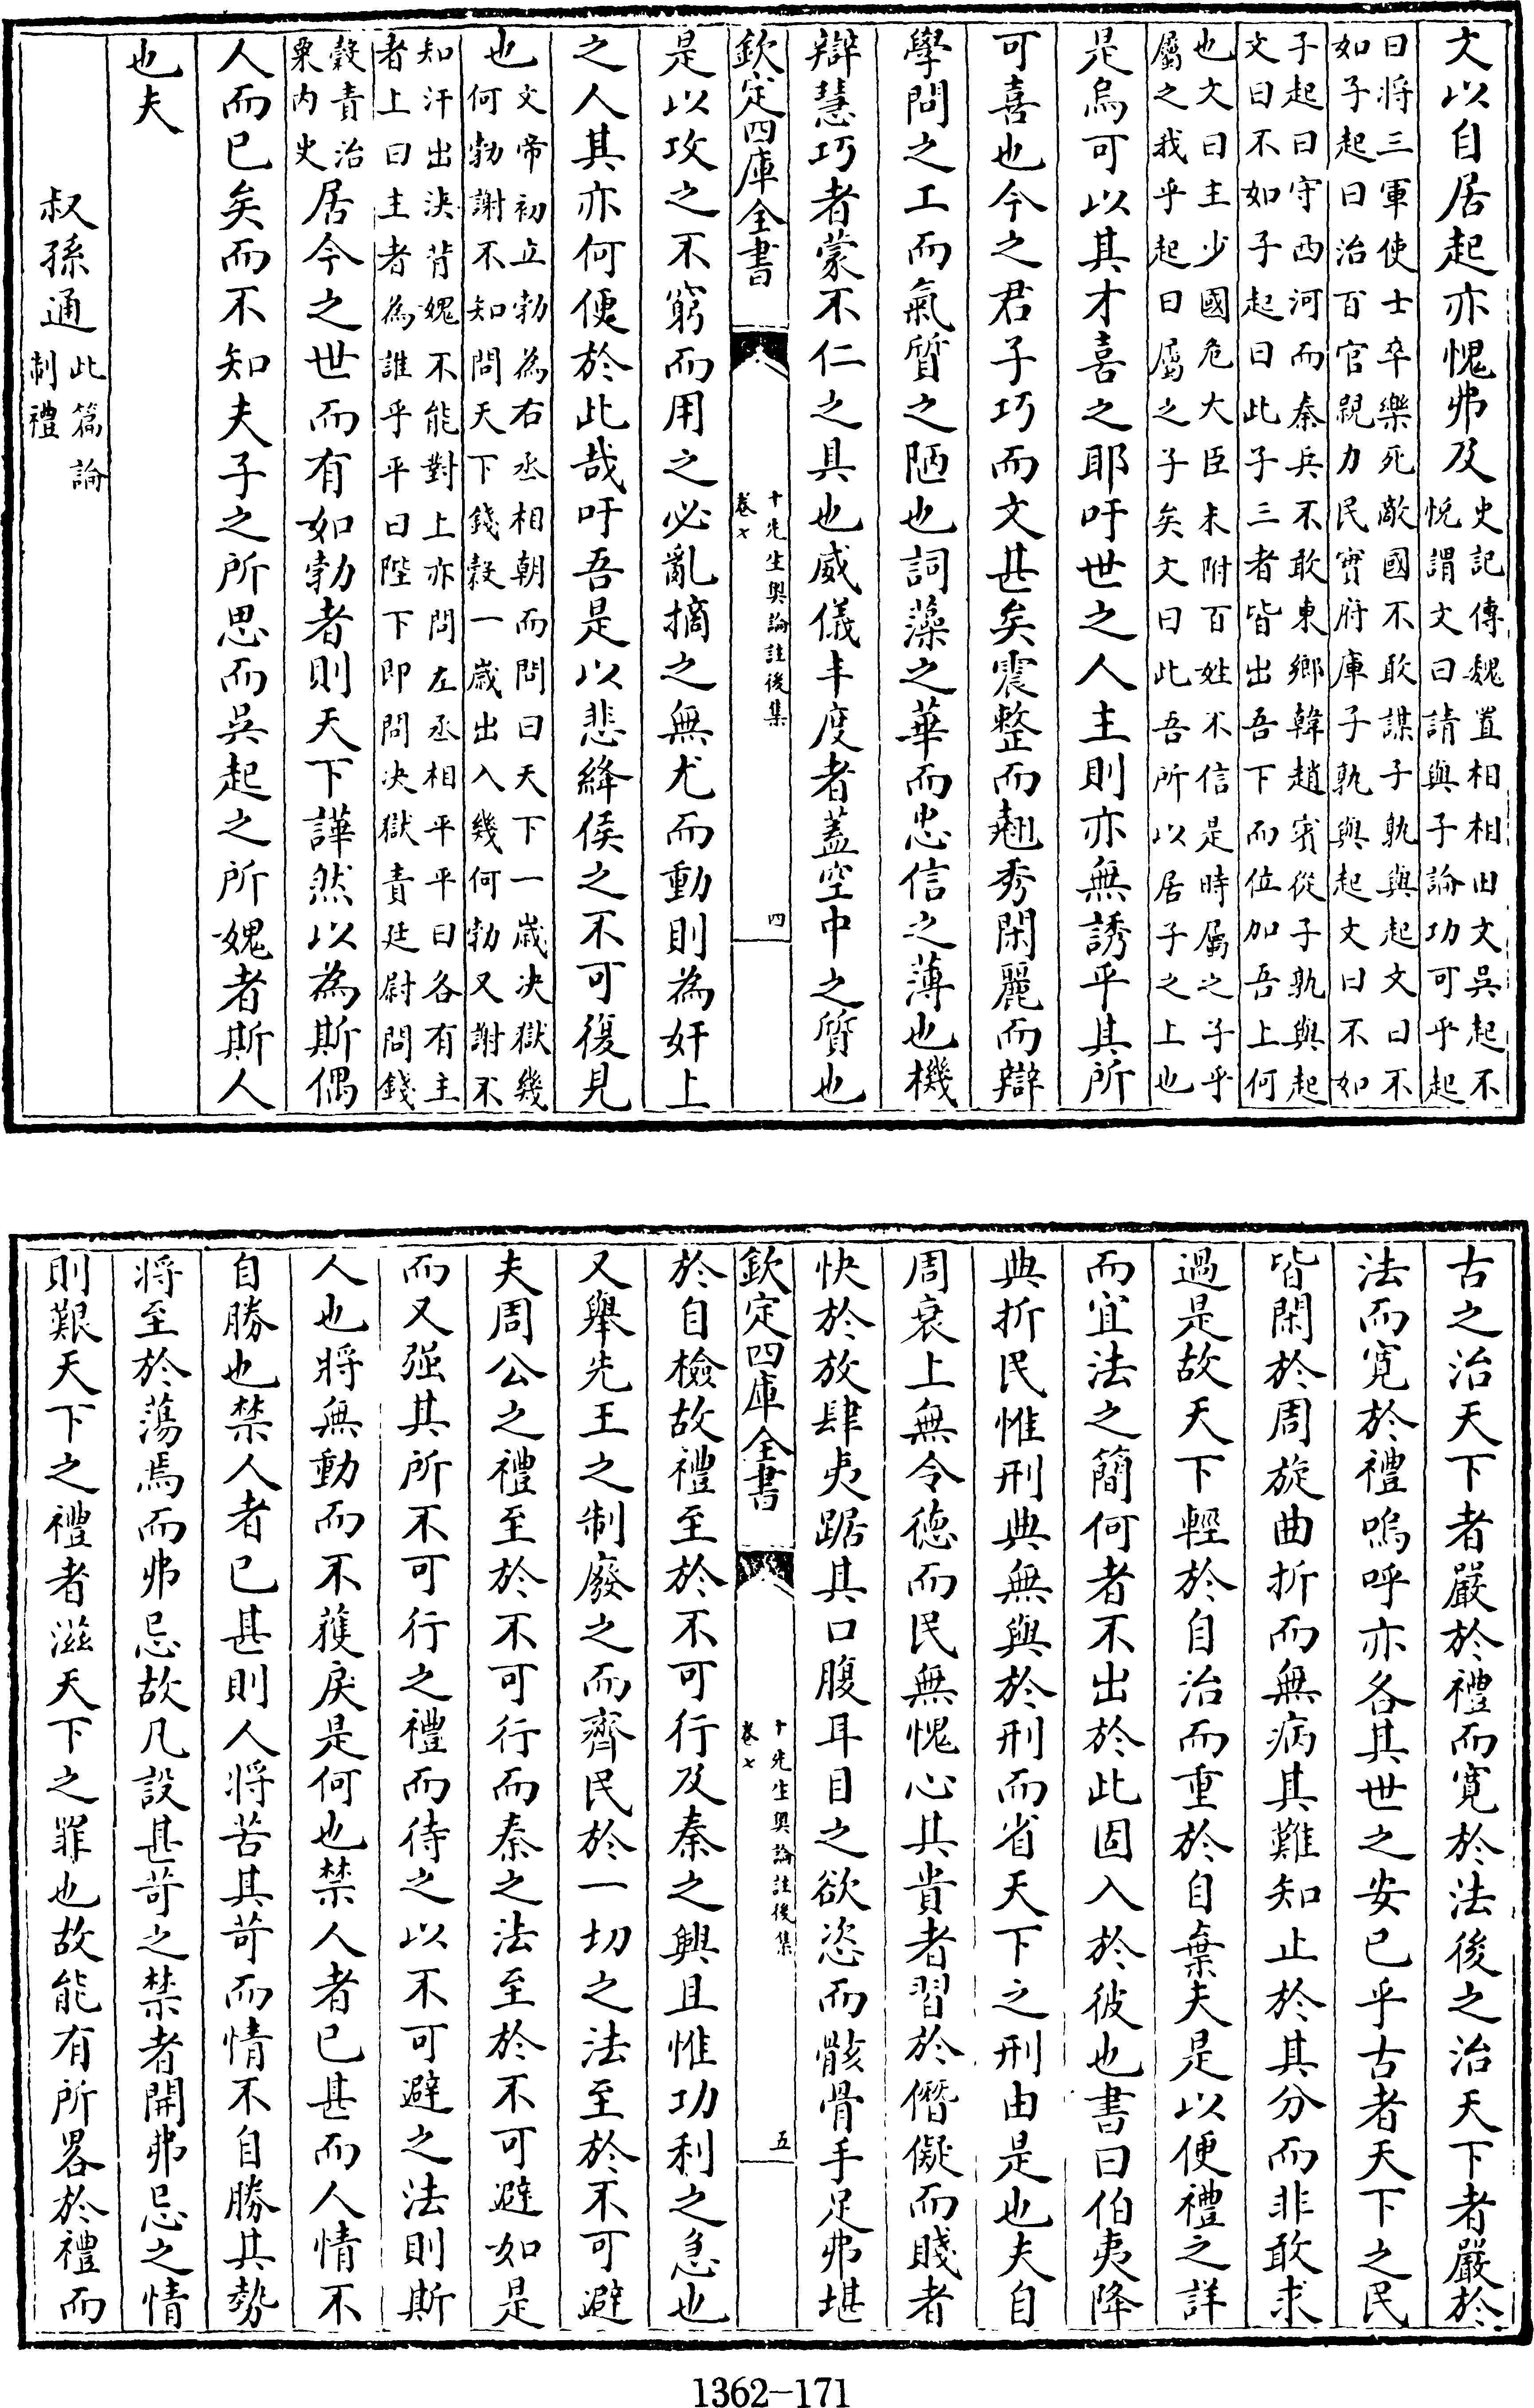 文以自居起亦愧弗及史記傳魏置相相田文吳起不
悅謂文曰請與子論功可乎起
曰將三軍使士卒樂死敵國不敢謀子孰與起文曰不
如子起曰治百官親力民實府庫子孰與起文曰不如
子起曰守西河而秦兵不敢東鄉韓趙賓從子孰與起
文曰不如子起曰此子三者皆出吾下而位加吾上何
也文曰主少國危大臣未附百姓不信是時屬之子乎
屬之我乎起曰屬之子矣文曰此吾所以居子之上也
是烏可以其才喜之耶吁世之人主則亦無誘乎其所
可喜也今之君子巧而文甚矣震整而翹秀閑麗而辯
學問之工而氣質之陋也詞藻之華而忠信之薄也機
辯慧巧者蒙不仁之具也威儀丰度者蓋空中之質也
欽定四庫全書
十先生奧論註後集
卷七
四
是以攻之不窮而用之必亂摘之無尤而動則為奸上
之人其亦何便於此哉吁吾是以悲絳侯之不可復見
也文帝初立勃為右丞相朝而問曰天下一歲決獄幾
何勃謝不知問天下錢穀一歲出入幾何勃又謝不
知汗出浹背媿不能對上亦問左丞相平平曰各有主
者上曰主者為誰乎平曰陛下即問決獄責廷尉問錢
穀責治
粟內史居今之世而有如勃者則天下譁然以為斯偶
人而已矣而不知夫子之所思而吳起之所媿者斯人
也夫
叔孫通此篇論
制禮
古之治天下者嚴於禮而寬於法後之治天下者嚴於
法而寬於禮嗚呼亦各其世之安已乎古者天下之民
皆閑於周旋曲折而無病其難知止於其分而非敢求
過是故天下輕於自治而重於自棄夫是以便禮之詳
而宜法之簡何者不出於此固入於彼也書曰伯夷降
典折民惟刑典無與於刑而省天下之刑由是也夫自
周衰上無令德而民無愧心其貴者習於僭儗而賤者
快於放肆夷踞其口腹耳目之欲恣而骸骨手足弗堪
欽定四庫全書
十先生奧論註後集
卷七
五
於自檢故禮至於不可行及秦之興且惟功利之急也
又舉先王之制廢之而齊民於一切之法至於不可避
夫周公之禮至於不可行而秦之法至於不可避如是
而又强其所不可行之禮而待之以不可避之法則斯
人也將無動而不獲戾是何也禁人者已甚而人情不
自勝也禁人者已甚則人將苦其苛而情不自勝其勢
將至於蕩焉而弗忌故凡設甚苛之禁者開弗忌之情
則艱天下之禮者滋天下之罪也故能有所畧於禮而
1362-171